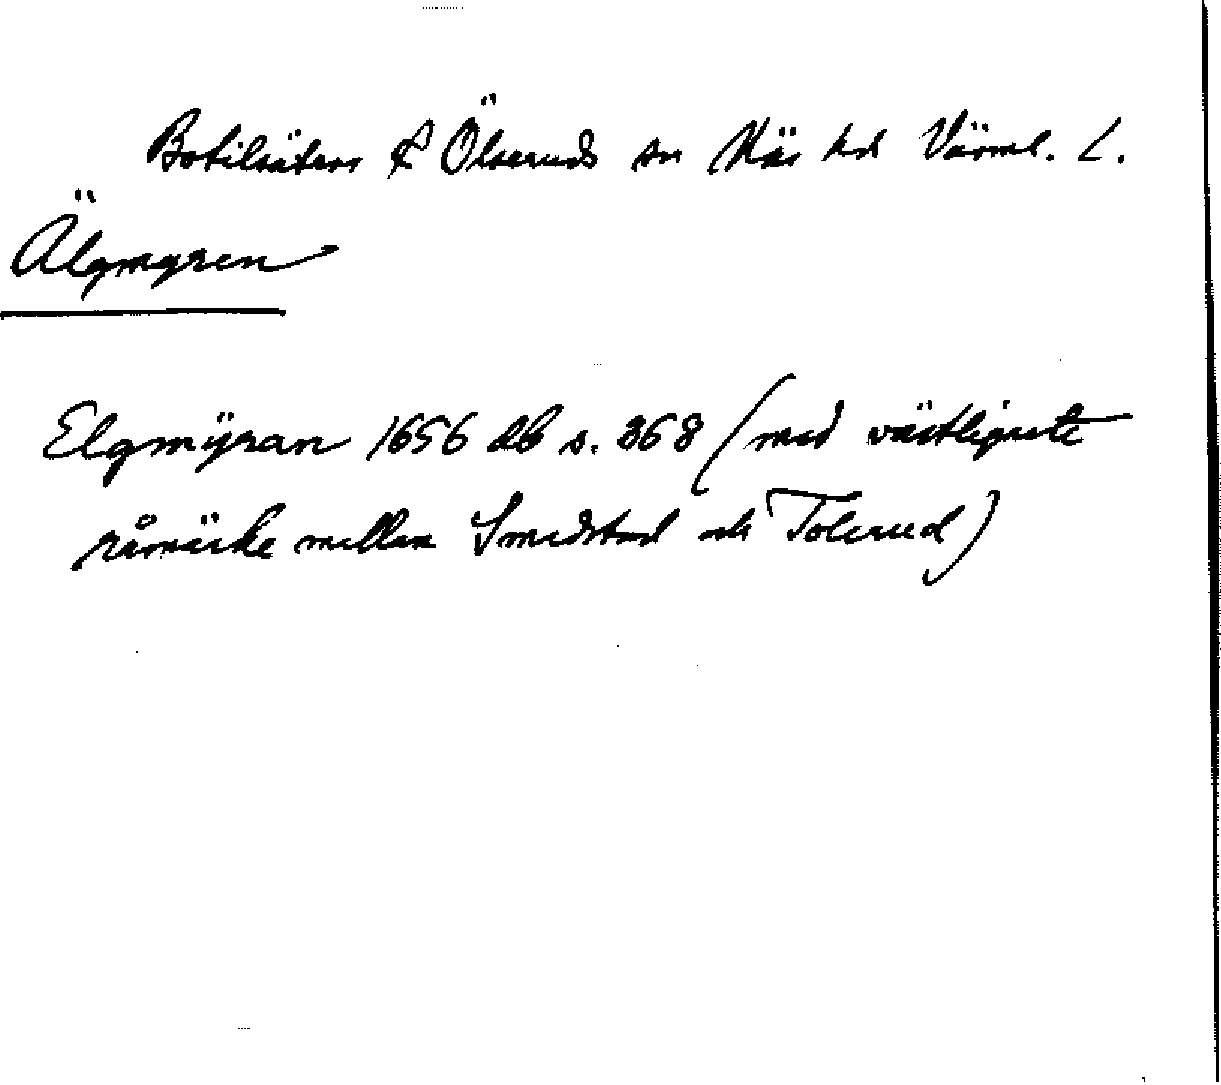 Botilsäters & Ölseruds sn Näs hd Värml. L.
Älgmyren
Elgmÿran 1656 db s. 368 (med västligaste
råmärke mellan Smedstad och Tolerud)